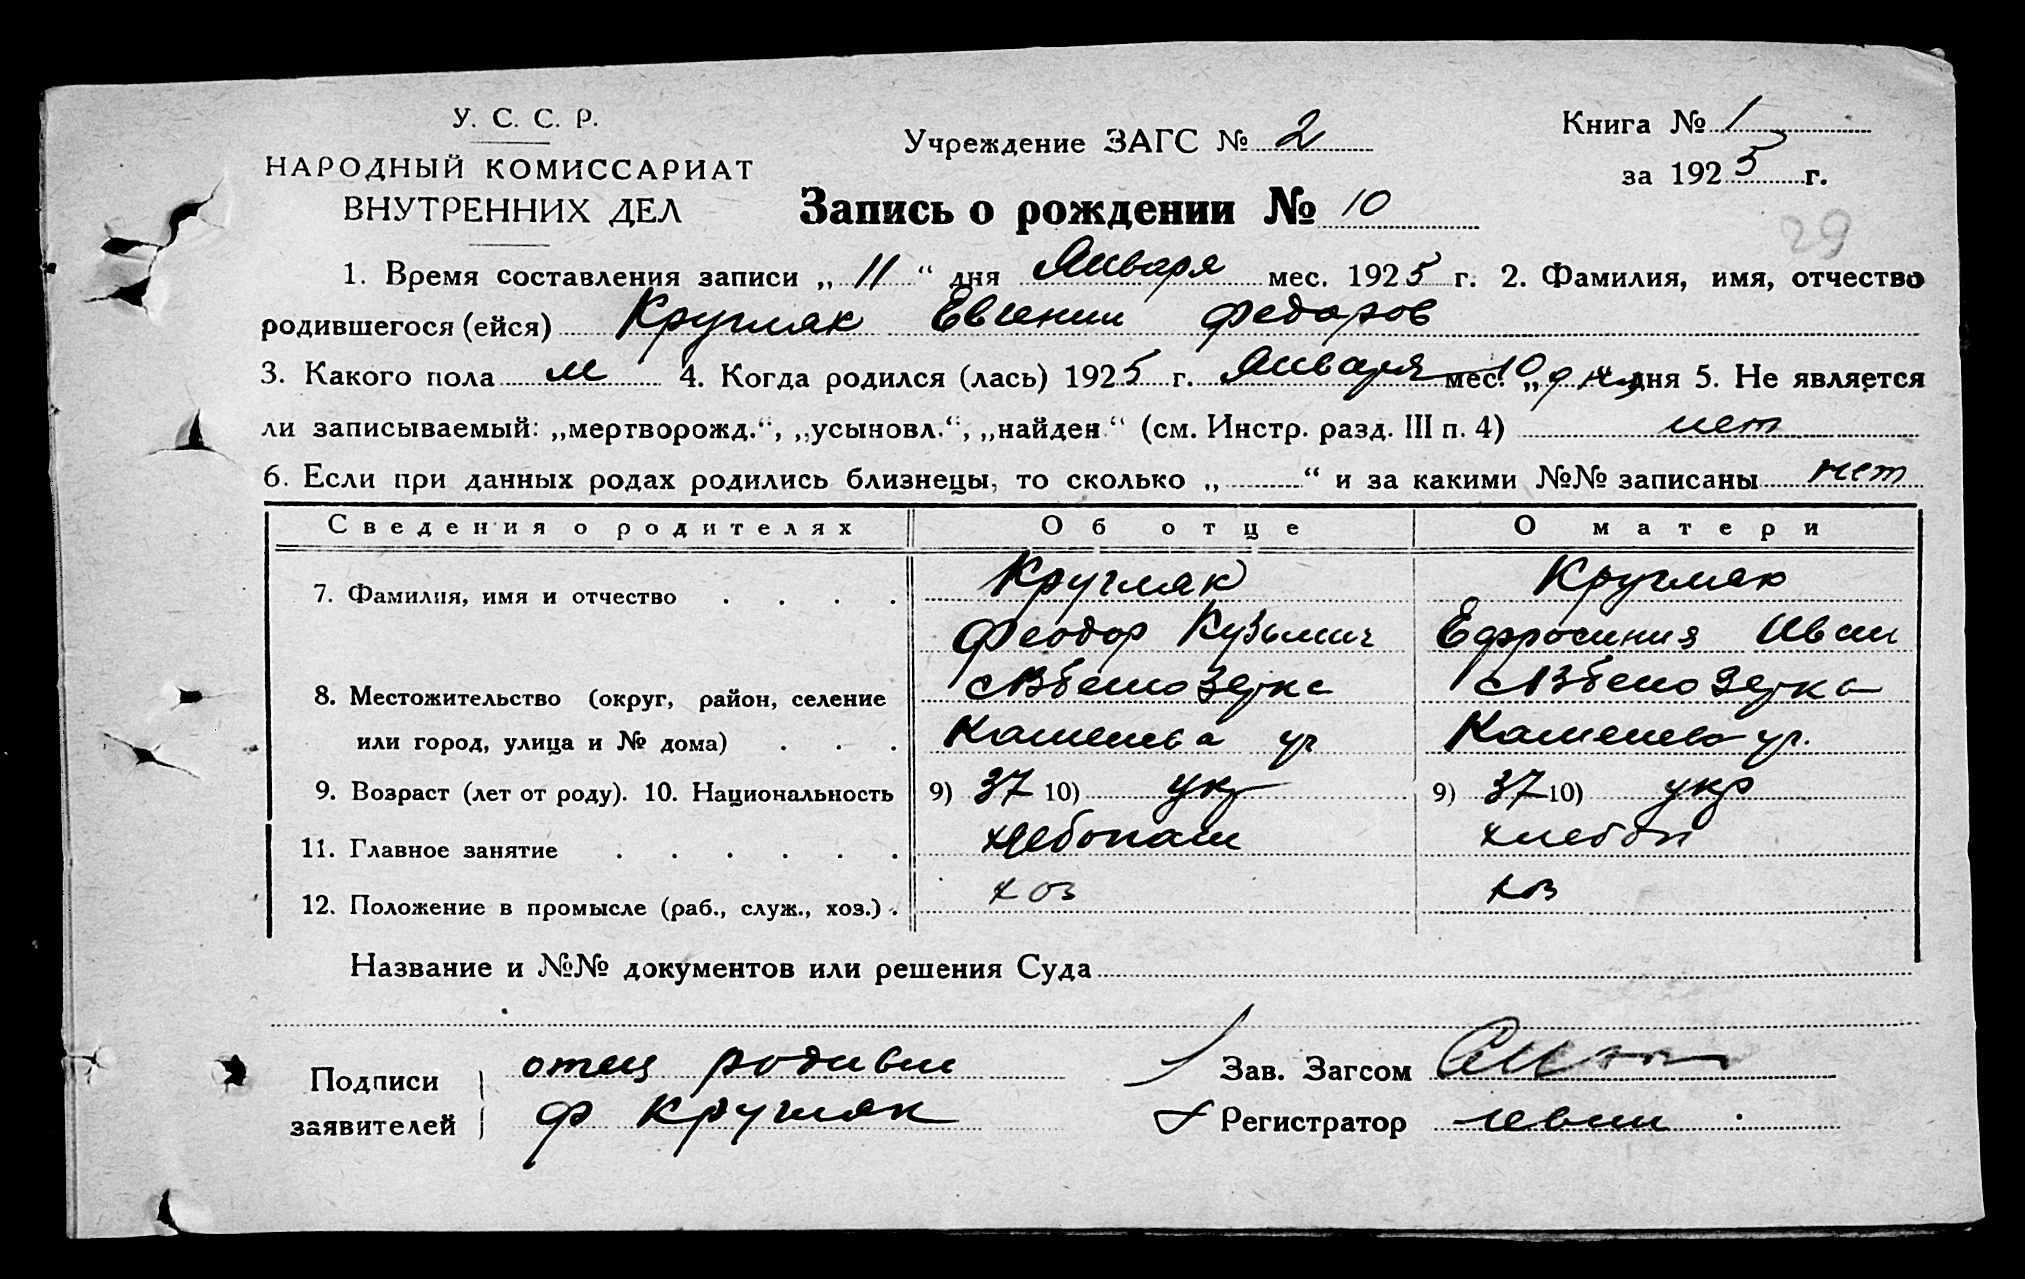 У. С. С. Р.
НАРОДНЫЙ КОМИССАРИАТ
ВНУТРЕННИХ ДЕЛ
Учреждение ЗАГС № 2
Книга № 1
за 1925 г.
Запись о рождении № 10
29
1. Время составления записи „ 11 “ дня Января мес. 1925 г. 2. Фамилия, имя, отчество
родившегося (ейся) Кругляк Евгении Федоров
3. Какого пола м 4. Когда родился (лась) 1925 г. Января мес. „ 10 дня 5. Не является
ли записываемый: „мертворожд.“, „усыновл.“, „найден.“ (см. Инстр. разд. III п. 4) нет
6. Если при данных родах родились близнецы, то сколько „ “ и за какими №№ записаны нет
Сведения о родителях Об отце О матери
7. Фамилия, имя и отчество . . . . Кругляк Кругляк
Феодор Кузьмич Ефросиния Иван
8. Местожительство (округ, район, селение Белозерка Белозерка
или город, улица и № дома) . . . Каменева ул Каменева ул.
9. Возраст (лет от роду). 10. Национальность 9) 37 10) укр 9) 37 10) укр
11. Главное занятие . . . . . . хлебопаш хлебоп
12. Положение в промысле (раб., служ., хоз.) . хоз хоз
Название и №№ документов или решения Суда
Подписи отец родивш Зав. Загсом
заявителей Ф Кругляк Регистратор Левин